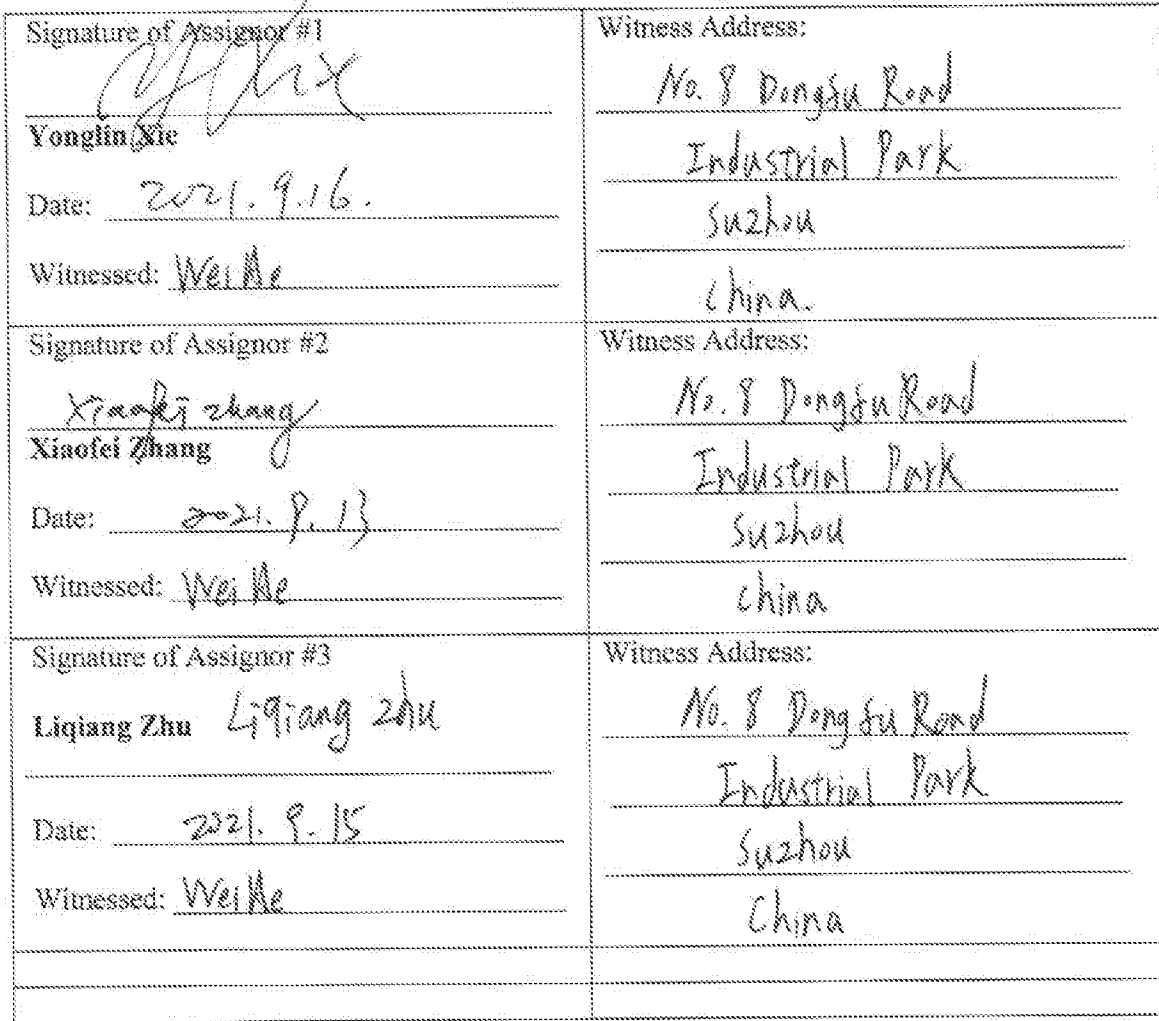 Signature of Assignor #1
Yonglin Xie
Date: 2021. 9.16.
Witnessed: Wei He
Witness Address:
No. 8 Dongfu Road
Industrial Park
Suzhou
China.
Signature of Assignor #2
Xiaofei zhang
Xiaofei Zhang
Date: 2021. 9. 13
Witnessed: Wei He
Witness Address:
No. 8 Dongfu Road
Industrial Park
Suzhou
China
Signature of Assignor #3
Liqiang Zhu Liqiang zhu
Date: 2021. 9. 15
Witnessed: Wei He
Witness Address:
No. 8 Dongfu Road
Industrial Park
Suzhou
China